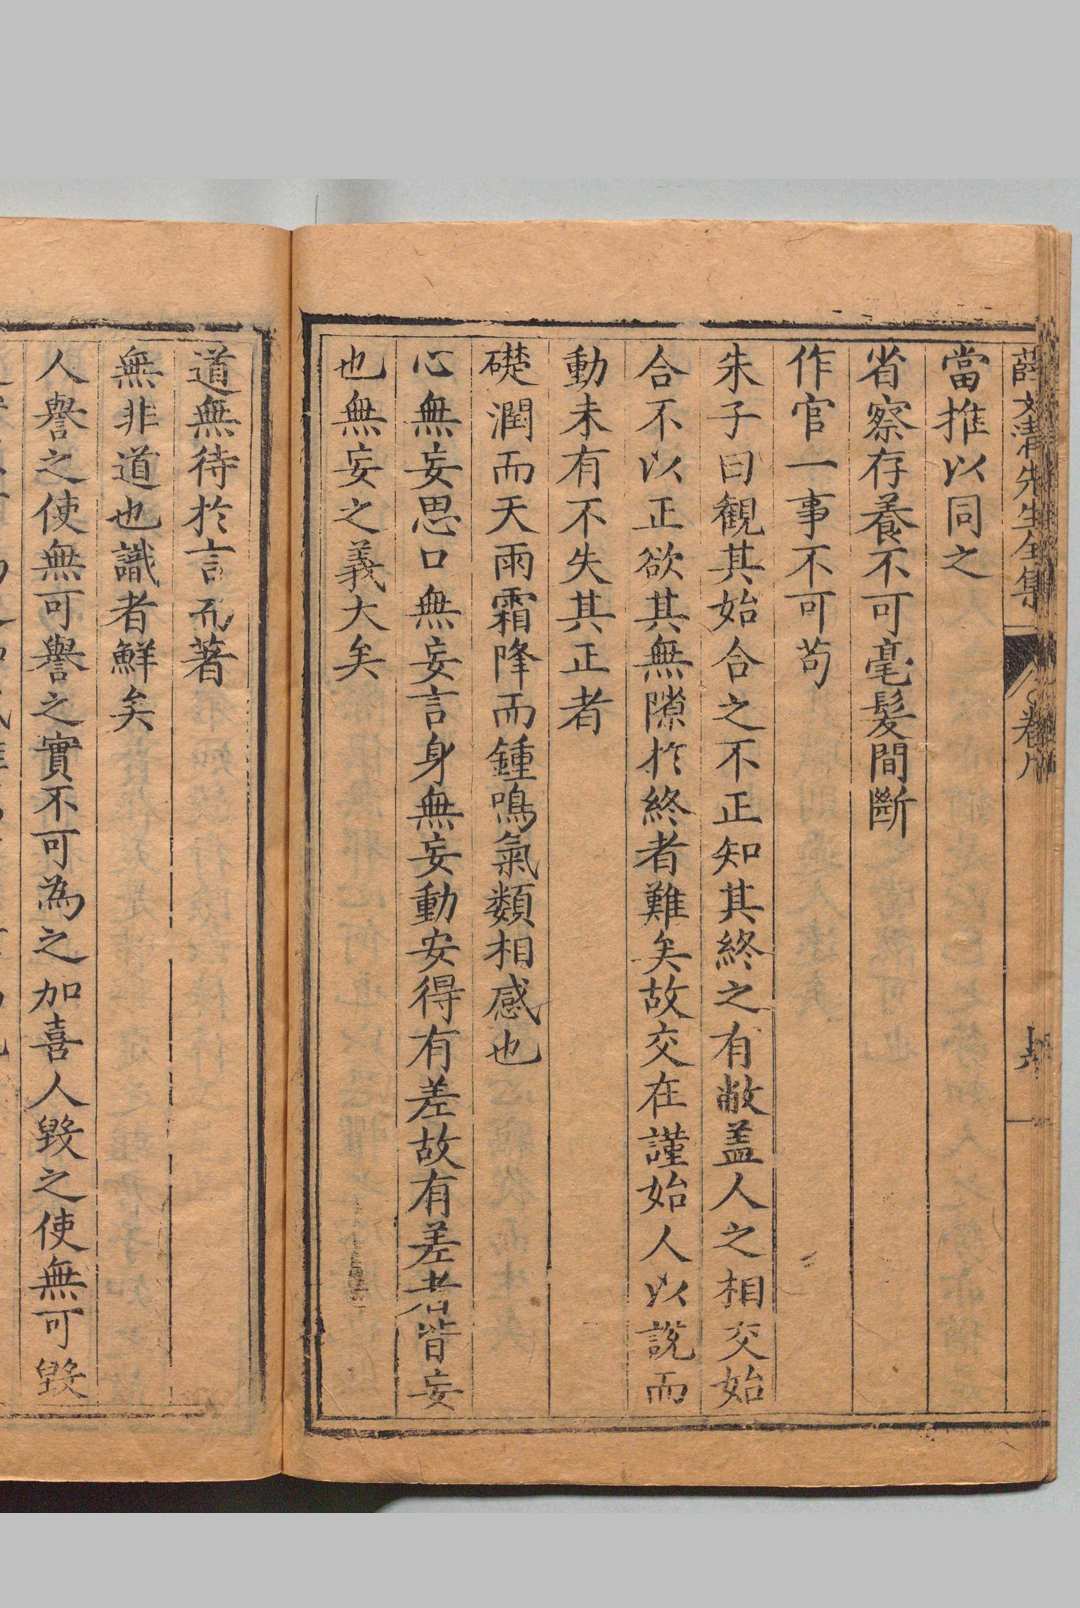 薛文清先生全集 卷八
當推以同之
省察存養不可毫髮間斷
作官一事不可苟
朱子曰觀其始合之不正知其終之有敝盖人之相交始
合不以正欲其無隙於終者難矣故交在謹始人以說而
動未有不失其正者
礎潤而天雨霜降而鍾鳴氣類相感也
心無妄思口無妄言身無妄動安得有差故有差者皆妄
也無妄之義大矣
道無待於言而著
無非道也識者鮮矣
人譽之使無可譽之實不可為之加喜人毀之使無可毀